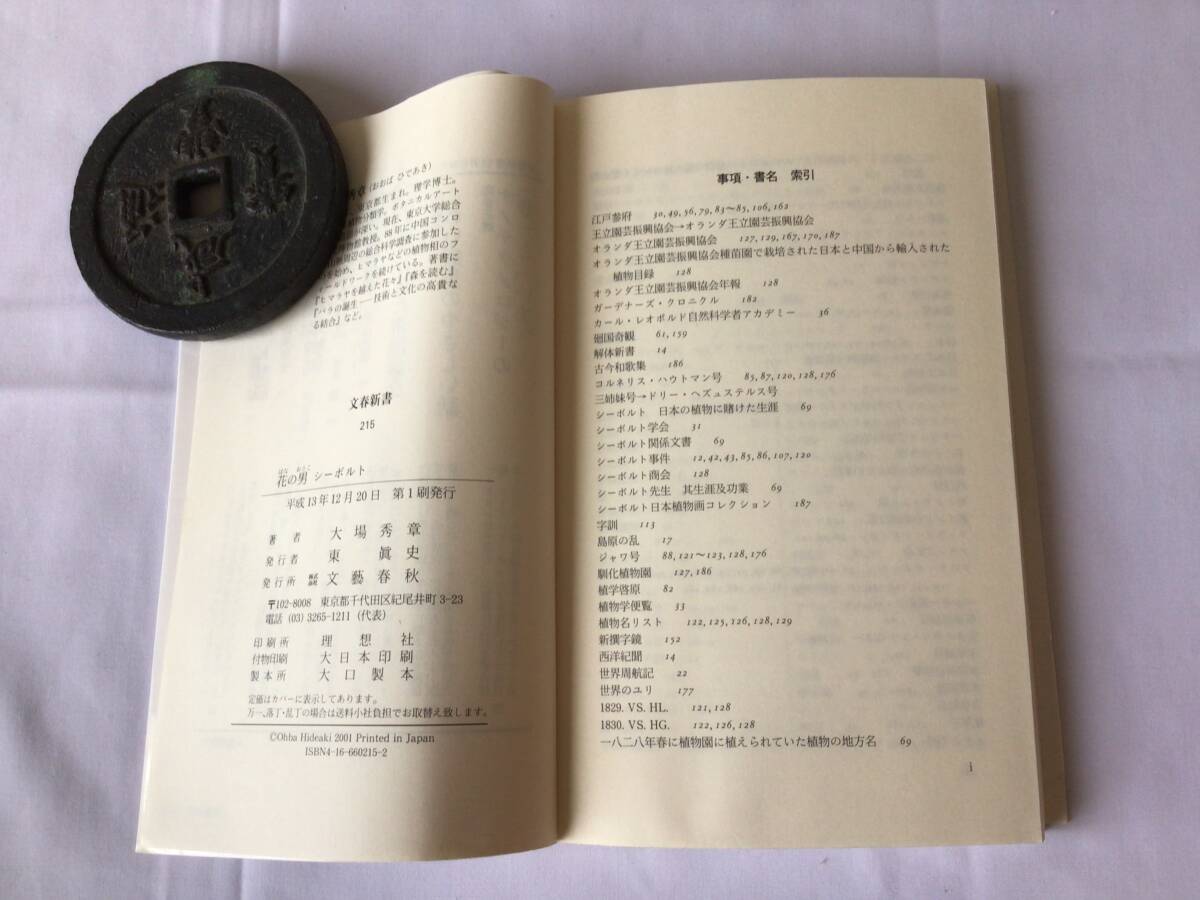 秀章(おおば ひであき)
東京都生まれ。理学博士。
植物分類学。ボタニカルアート
が深い。現在、東京大学総合
物館教授。88年に中国コンロ
周辺の総合科学調査に参加した
を始め、ヒマラヤなどの植物相のフ
ィールドワークを続けている。著書に
『ヒマラヤを越えた花々』『森を読む』
『バラの誕生——技術と文化の高貴な
る結合』など。
文春新書
215
はな おとこ
花の男 シーボルト
平成13年12月20日 第1刷発行
著者 大場秀章
発行者 東眞史
発行所 株式会社 文藝春秋
〒102-8008 東京都千代田区紀尾井町3-23
電話 (03) 3265-1211 (代表)
印刷所 理想社
付物印刷 大日本印刷
製本所 大口製本
定価はカバーに表示してあります。
万一、落丁・乱丁の場合は送料小社負担でお取替え致します。
©Ohba Hideaki 2001 Printed in Japan
ISBN4-16-660215-2
事項・書名 索引
江戸参府 30, 49, 56, 79, 83〜85, 106, 162
王立園芸振興協会→オランダ王立園芸振興協会
オランダ王立園芸振興協会 127, 129, 167, 170, 187
オランダ王立園芸振興協会種苗園で栽培された日本と中国から輸入された
植物目録 128
オランダ王立園芸振興協会年報 128
ガーデナーズ・クロニクル 182
カール・レオポルド自然科学者アカデミー 36
廻国奇観 61, 159
解体新書 14
古今和歌集 186
コルネリス・ハウトマン号 85, 87, 120, 128, 176
三姉妹号→ドリー・ヘズュステルス号
シーボルト 日本の植物に賭けた生涯 69
シーボルト学会 31
シーボルト関係文書 69
シーボルト事件 12, 42, 43, 85, 86, 107, 120
シーボルト商会 128
シーボルト先生 其生涯及功業 69
シーボルト日本植物画コレクション 187
字訓 113
島原の乱 17
ジャワ号 88, 121〜123, 128, 176
馴化植物園 127, 186
植学啓原 82
植物学便覧 33
植物名リスト 122, 125, 126, 128, 129
新撰字鏡 152
西洋紀聞 14
世界周航記 22
世界のユリ 177
1829. VS. HL. 121, 128
1830. VS. HG. 122, 126, 128
一八二八年春に植物園に植えられていた植物の地方名 69
i